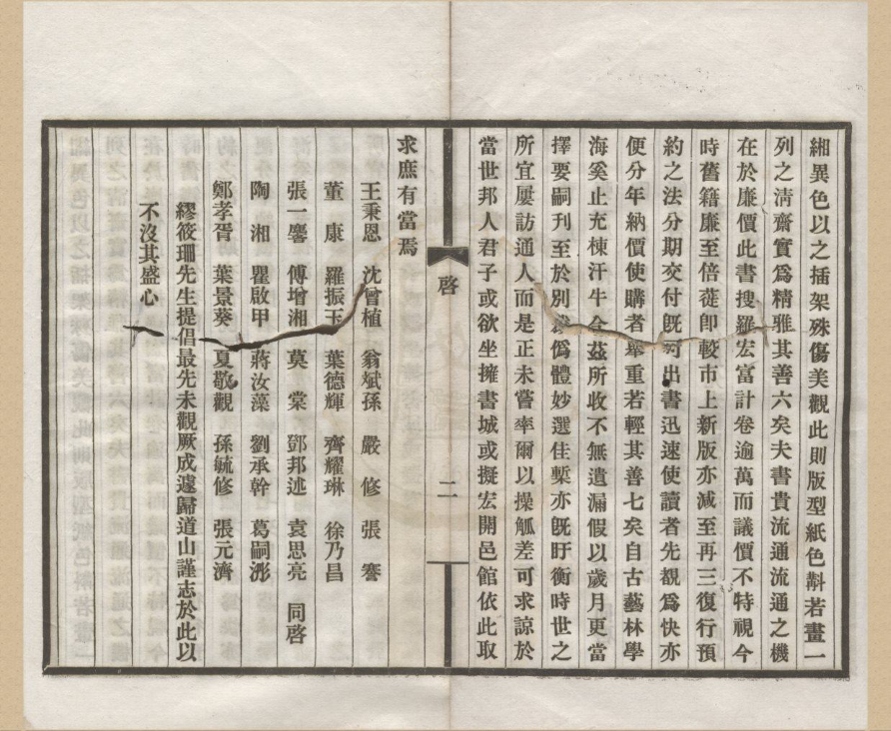 緗異色以之插架殊傷美觀此則版型紙色斠若畫一
列之淸齋實爲精雅其善六矣夫書貴流通流通之機
在於廉價此書搜羅宏富計卷逾萬而議價不特視今
時舊籍廉至倍蓰卽較市上新版亦減至再三復行預
約之法分期交付旣可出書迅速使讀者先覩爲快亦
便分年納價使購者舉重若輕其善七矣自古藝林學
海奚止充棟汗牛今茲所收不無遺漏假以歲月更當
擇要嗣刊至於別裁僞體妙選佳槧亦旣盱衡時世之
所宜屢訪通人而是正未嘗率爾以操觚差可求諒於
當世邦人君子或欲坐擁書城或擬宏開邑館依此取
啓
二
求庶有當焉
王秉恩 沈曾植 翁斌孫 嚴修 張謇
董康 羅振玉 葉德輝 齊耀琳 徐乃昌
張一麐 傅增湘 莫棠 鄧邦述 袁思亮 同啓
陶湘 瞿啟甲 蔣汝藻 劉承幹 葛嗣浵
鄭孝胥 葉景葵 夏敬觀 孫毓修 張元濟
繆筱珊先生提倡最先未觀厥成遽歸道山謹志於此以
不沒其盛心